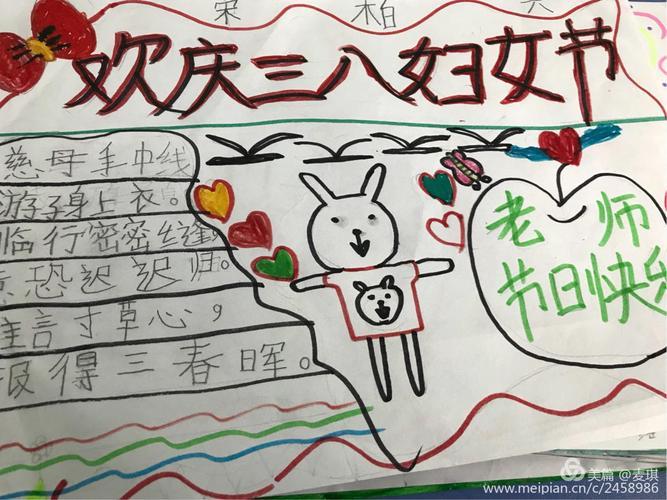 宋 柏
欢庆三八妇女节
慈母手巾线
游子身上衣。
临行密密缝
意恐迟迟归。
谁言寸草心，
报得三春晖。
老师
节日快乐
美篇 @麦琪
www.meipian.cn/c/2458986